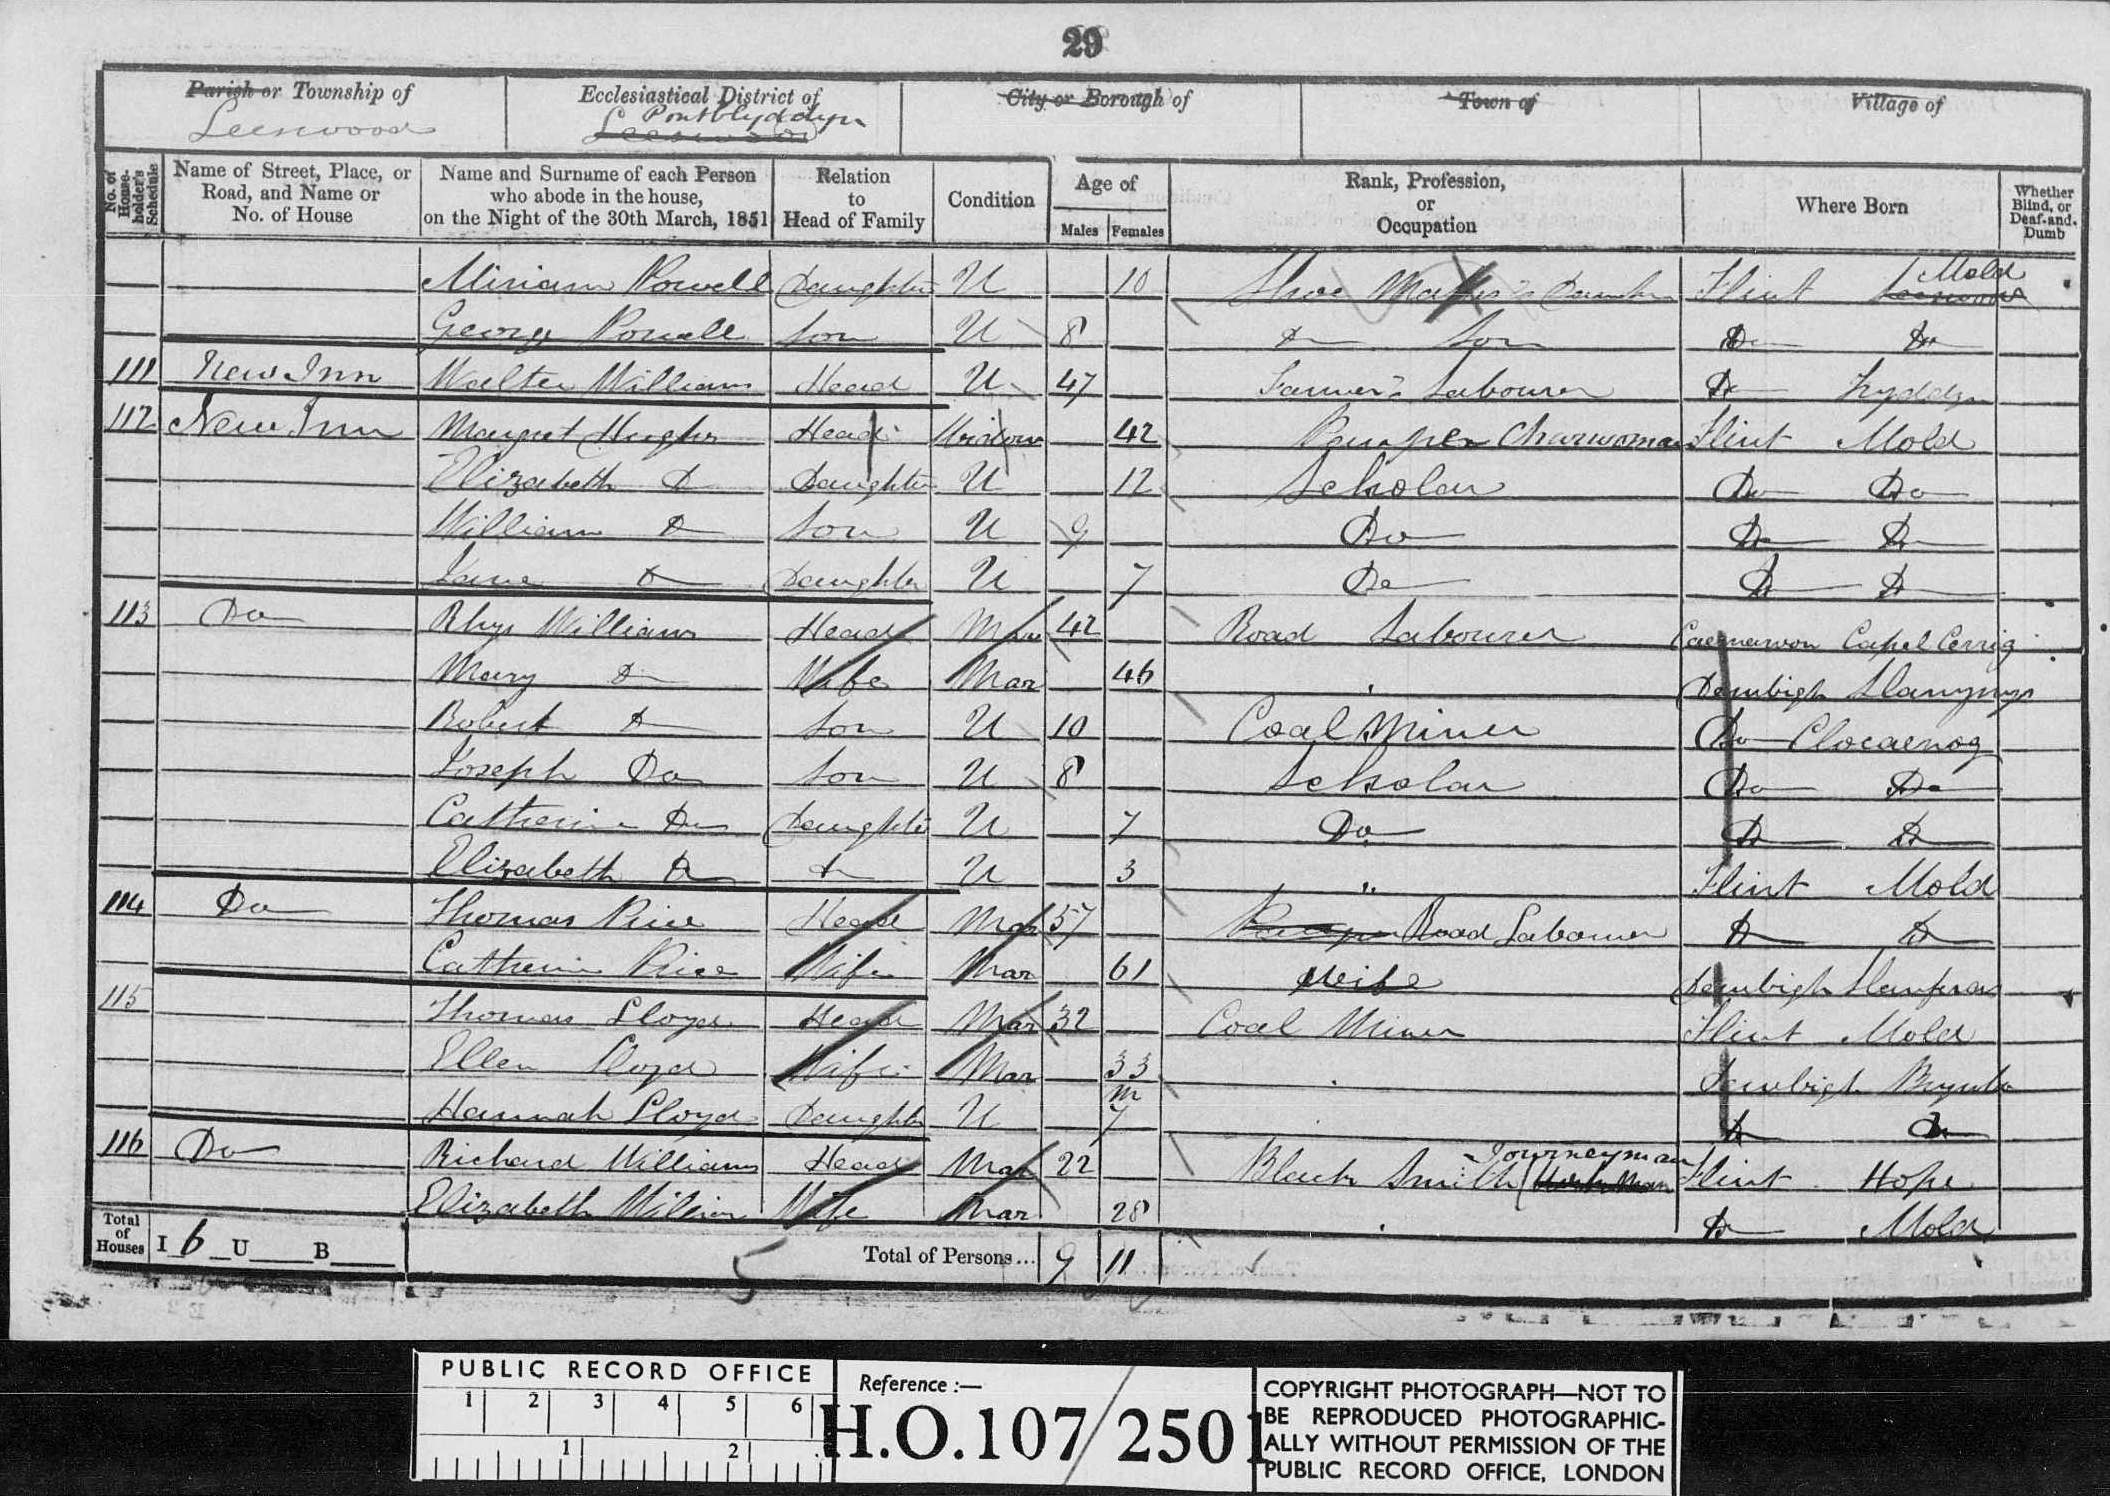 29
Parish or Township of
Leeswood
Ecclesiastical District of
Pontblyddyn
Leeswood
City or Borough of
Town of
Village of
No. of House-holder's Schedule
Name of Street, Place, or Road, and Name or No. of House
Name and Surname of each Person who abode in the house, on the Night of the 30th March, 1851
Relation to Head of Family
Condition
Age of
Males Females
Rank, Profession, or Occupation
Where Born
Whether Blind, or Deaf-and-Dumb
Miriam Powell Daughter U 10 Shoe Maker's Daughter Flint Leeswood Mold
George Powell Son U 8 Do Son Do Do
111 New Inn Walter Williams Head U 47 Farmer's Labourer Do
112 New Inn Margret Hughes Head Widow 42 Pauper Charwoman Flint Mold
Elizabeth Do Daughter U 12 Scholar Do Do
William Do Son U 9 Do Do Do
Jane Do Daughter U 7 Do Do Do
113 Do Rhys Williams Head Mar 42 Road Labourer Caernarvon Capel Cerrig
Mary Do Wife Mar 46 Denbigh Llanynys
Robert Do Son U 10 Coal Miner Do Clocaenog
Joseph Do Son U 8 Scholar Do Do
Catherine Do Daughter U 7 Do Do Do
Elizabeth Do Do U 3 " Flint Mold
114 Do Thomas Price Head Mar 57 Pauper Road Labourer Do Do
Catherine Price Wife Mar 61 Wife Denbigh Llanferas
115 Thomas Lloyd Head Mar 32 Coal Miner Flint Mold
Ellen Lloyd Wife Mar 33 Denbigh Brymbo
Hannah Lloyd Daughter U 7 m Do Do
116 Do Richard Williams Head Mar 22 Black Smith Journeyman Flint Hope
Elizabeth Williams Wife Mar 28 Do Mold
Total of Houses I 6 U B
5
Total of Persons... 9 11
PUBLIC RECORD OFFICE
1 2 3 4 5 6
1 2
Reference :—
H.O.107/2501
COPYRIGHT PHOTOGRAPH—NOT TO
BE REPRODUCED PHOTOGRAPHIC-
ALLY WITHOUT PERMISSION OF THE
PUBLIC RECORD OFFICE, LONDON